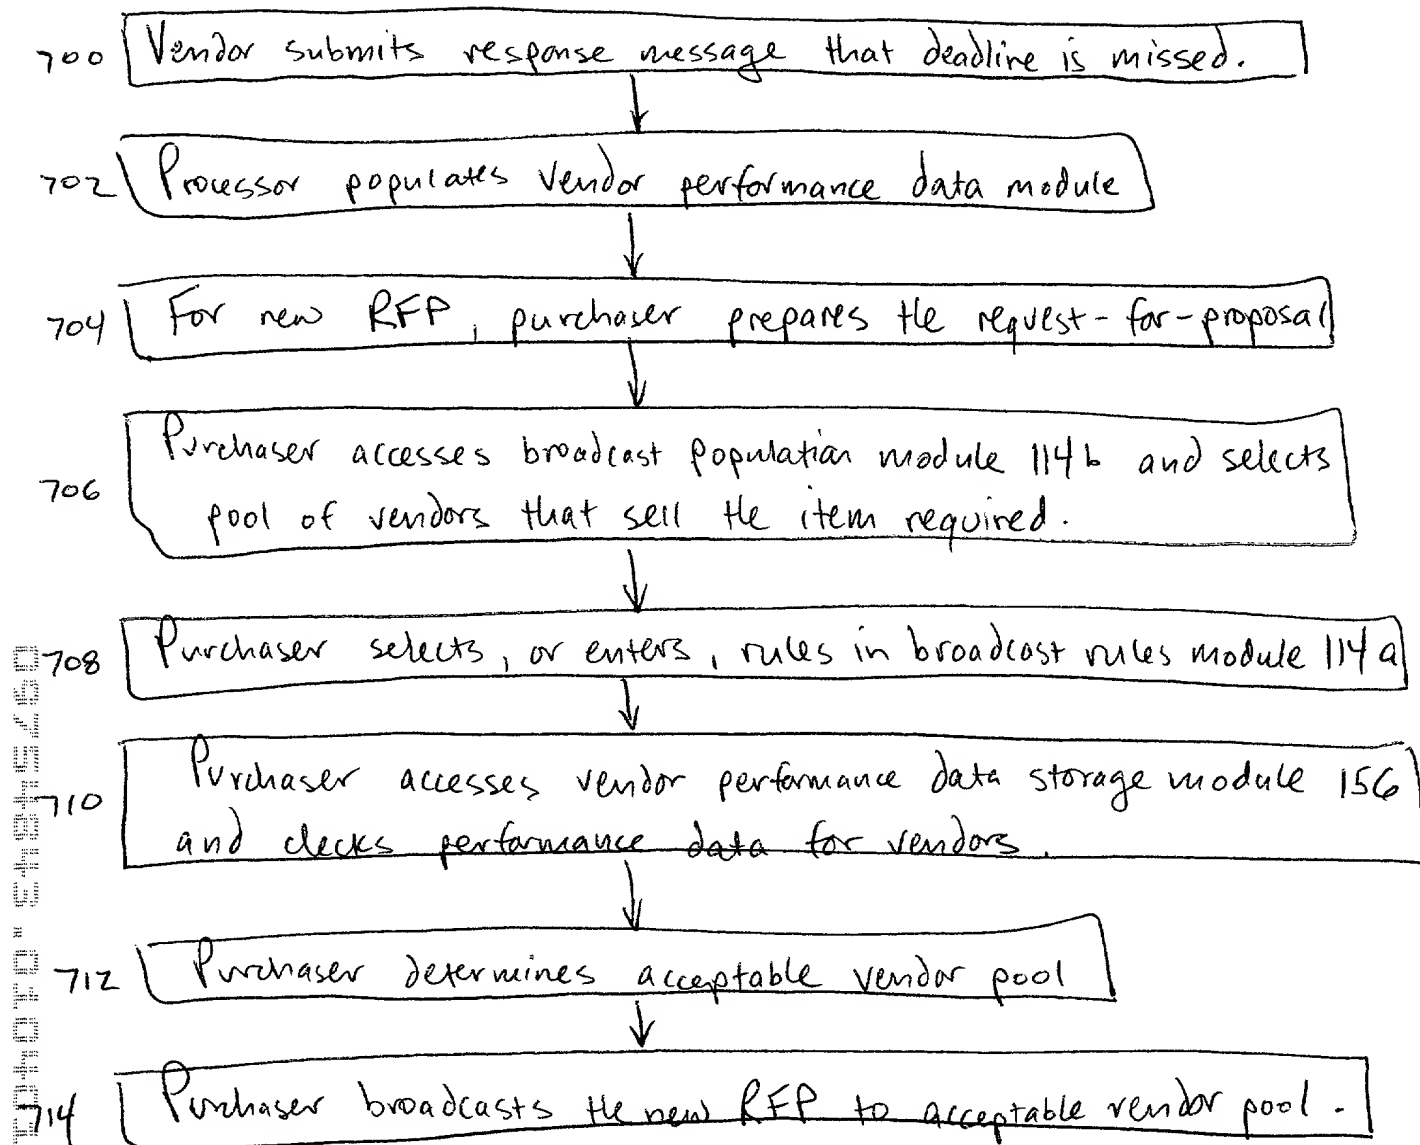 700 Vendor submits response message that deadline is missed.
702 Processor populates vendor performance data module
704 For new RFP, purchaser prepares the request-for-proposal
Purchaser accesses broadcast population module 114b and selects
706
pool of vendors that sell the item required.
708 Purchaser selects, or enters, rules in broadcast rules module 114a
Purchaser accesses vendor performance data storage module 156
710
and checks performance data for vendors.
712 Purchaser determines acceptable vendor pool
714 Purchaser broadcasts the new RFP to acceptable vendor pool.